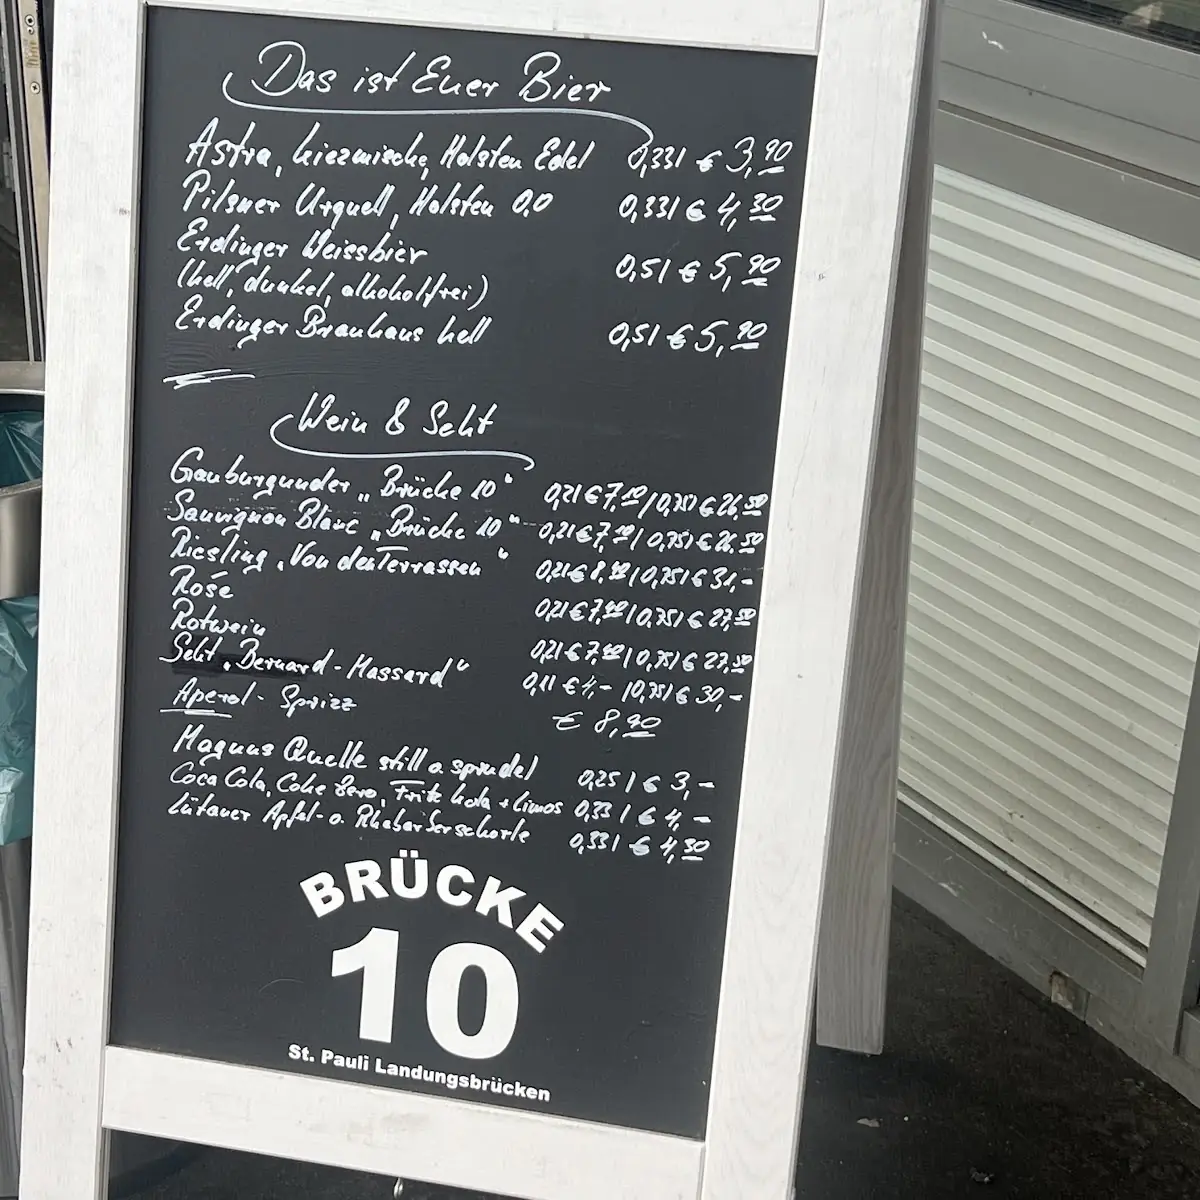 Das ist Euer Bier
Astra, kiezmische, Holsten Edel 0,33l € 3,90
Pilsner Urquell, Holsten 0,0 0,33l € 4,30
Erdinger Weissbier
(hell, dunkel, alkoholfrei) 0,5l € 5,90
Erdinger Brauhaus hell 0,5l € 5,90
Wein & Sekt
Grauburgunder „Brücke 10“ 0,2l € 7,10 / 0,75l € 26,50
Sauvignon Blanc „Brücke 10“ 0,2l € 7,10 / 0,75l € 26,50
Riesling „Von den Terrassen“ 0,2l € 8,40 / 0,75l € 31,-
Rosé 0,2l € 7,40 / 0,75l € 27,50
Rotwein 0,2l € 7,40 / 0,75l € 27,50
Sekt „Bernard-Massard“ 0,1l € 4,- / 0,75l € 30,-
Aperol-Sprizz € 8,90
Magnus Quelle still o. sprudel 0,25l € 3,-
Coca Cola, Coke Zero, Fritz kola + Limos 0,33l € 4,-
Lütauer Apfel- o. Rhabarberschorle 0,33l € 4,50
BRÜCKE
10
St. Pauli Landungsbrücken